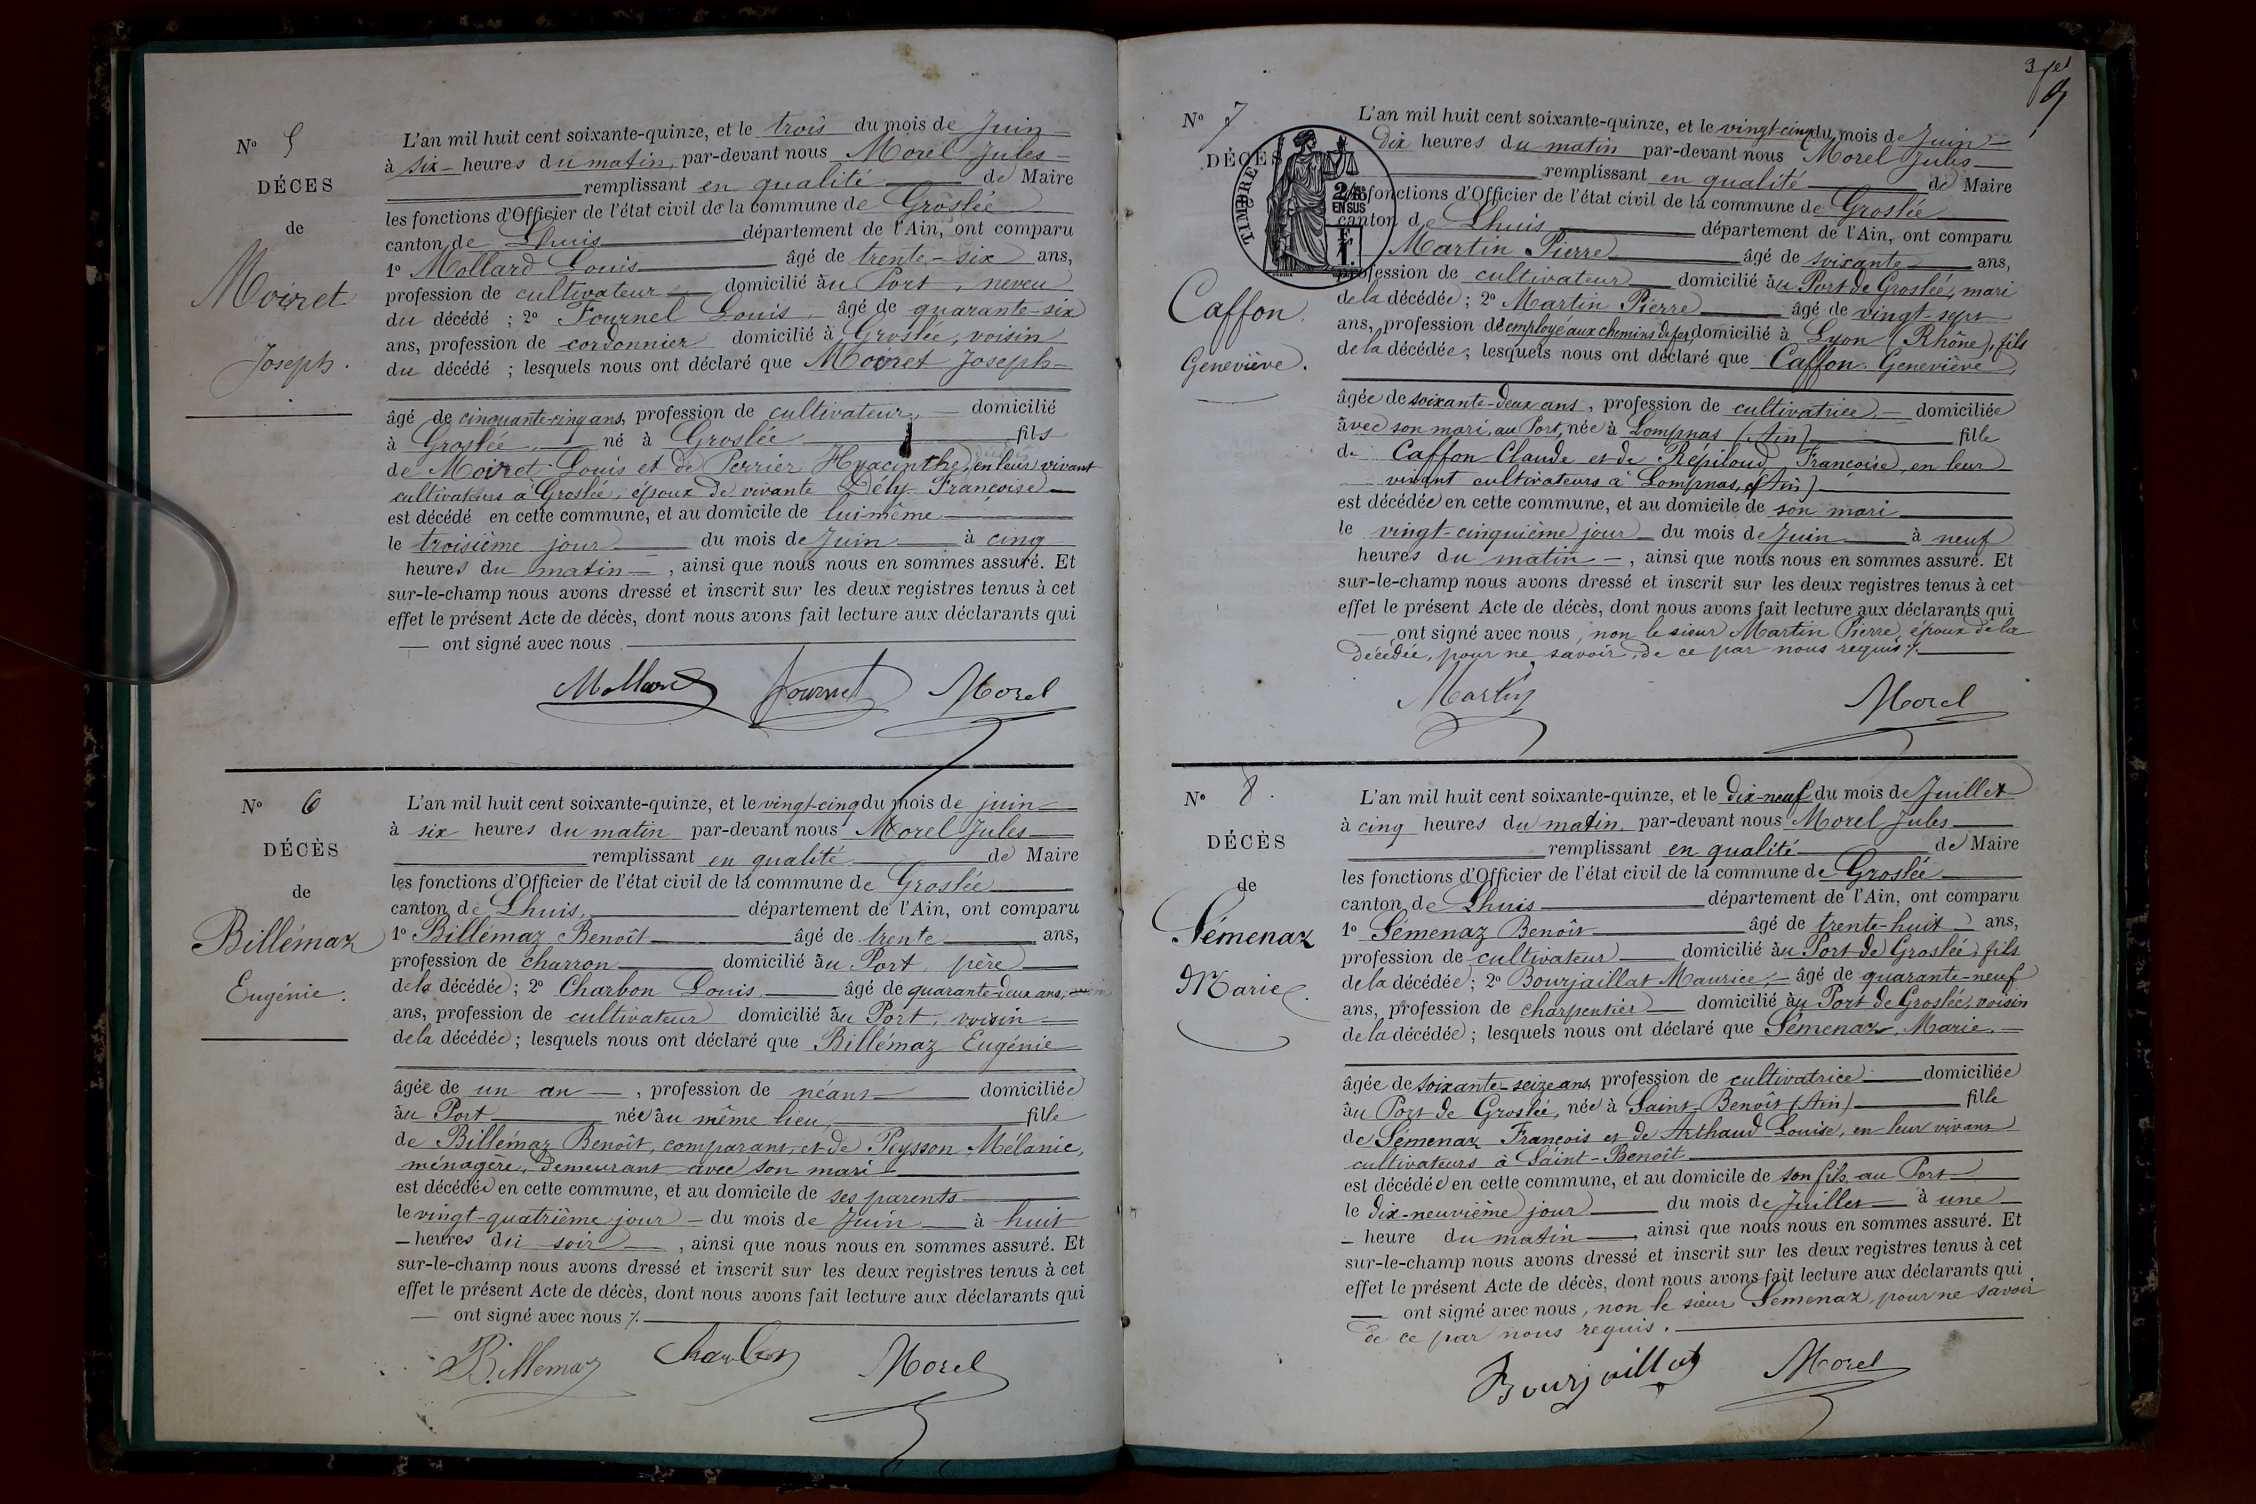 Nº 5
DÉCES
de
Moiret
Joseph.
L'an mil huit cent soixante-quinze, et le trois du mois de Juin
à six heures du matin, par-devant nous Morel Jules
remplissant en qualité de Maire
les fonctions d'Officier de l'état civil de la commune de Groslée
canton de Lhuis département de l'Ain, ont comparu
1º Mollard Louis âgé de trente-six ans,
profession de cultivateur domicilié au Port, neveu
du décédé ; 2º Fournel Louis âgé de quarante-six
ans, profession de cordonnier domicilié à Groslée, voisin
du décédé ; lesquels nous ont déclaré que Moiret Joseph
âgé de cinquante-cinq ans, profession de cultivateur, domicilié
à Groslée, né à Groslée fils
de Moiret Louis et de Perrier Hyacinthe, en leur vivant
cultivateurs à Groslée, époux de vivante Dély Françoise
est décédé en cette commune, et au domicile de lui même
le troisième jour du mois de Juin à cinq
heures du matin, ainsi que nous nous en sommes assuré. Et
sur-le-champ nous avons dressé et inscrit sur les deux registres tenus à cet
effet le présent Acte de décès, dont nous avons fait lecture aux déclarants qui
ont signé avec nous.
Mollard Fournel Morel
Nº 6
DÉCÈS
de
Billémaz
Eugénie.
L'an mil huit cent soixante-quinze, et le vingt-cinq du mois de juin
à six heures du matin par-devant nous Morel Jules
remplissant en qualité de Maire
les fonctions d'Officier de l'état civil de la commune de Groslée
canton de Lhuis, département de l'Ain, ont comparu
1º Billémaz Benoît âgé de trente ans,
profession de charron domicilié au Port, père
de la décédée ; 2º Charbon Louis, âgé de quarante-deux ans,
ans, profession de cultivateur domicilié au Port, voisin
de la décédée ; lesquels nous ont déclaré que Billémaz Eugénie
âgée de un an, profession de néant domiciliée
au Port née au même lieu, fille
de Billémaz Benoît, comparant, et de Peysson Mélanie,
ménagère, demeurant avec son mari
est décédée en cette commune, et au domicile de ses parents
le vingt-quatrième jour du mois de Juin à huit
heures du soir, ainsi que nous nous en sommes assuré. Et
sur-le-champ nous avons dressé et inscrit sur les deux registres tenus à cet
effet le présent Acte de décès, dont nous avons fait lecture aux déclarants qui
ont signé avec nous ⁒
Billemaz Charbon Morel
3 fet
9
Nº 7
DÉCÈS
TIMBRE
2/10 EN SUS
F. 1.
Caffon.
Geneviève.
L'an mil huit cent soixante-quinze, et le vingt-cinq du mois de Juin
Dix heures du matin par-devant nous Morel Jules
remplissant en qualité de Maire
fonctions d'Officier de l'état civil de la commune de Groslée
canton de Lhuis département de l'Ain, ont comparu
Martin Pierre âgé de soixante ans,
profession de cultivateur domicilié au Port de Groslée, mari
de la décédée ; 2º Martin Pierre âgé de vingt-sept
ans, profession de employé aux chemins de fer, domicilié à Lyon (Rhône), fils
de la décédée ; lesquels nous ont déclaré que Caffon Geneviève,
âgée de soixante-deux ans, profession de cultivatrice domiciliée
avec son mari, au Port, née à Lompnas (Ain) fille
de Caffon Claude et de Répiloud Françoise, en leur
vivant cultivateurs à Lompnas, (Ain)
est décédée en cette commune, et au domicile de son mari
le vingt-cinquième jour du mois de Juin à neuf
heures du matin, ainsi que nous nous en sommes assuré. Et
sur-le-champ nous avons dressé et inscrit sur les deux registres tenus à cet
effet le présent Acte de décès, dont nous avons fait lecture aux déclarants qui
ont signé avec nous, non le sieur Martin Pierre, époux de la
décédée, pour ne savoir, de ce par nous requis ⁒
Martin Morel
Nº 8.
DÉCÈS
de
Sémenaz
Marie.
L'an mil huit cent soixante-quinze, et le dix-neuf du mois de Juillet
à cinq heures du matin, par-devant nous Morel Jules
remplissant en qualité de Maire
les fonctions d'Officier de l'état civil de la commune de Groslée
canton de Lhuis département de l'Ain, ont comparu
1º Sémenaz Benoît âgé de trente-huit ans,
profession de cultivateur domicilié au Port de Groslée, fils
de la décédée ; 2º Bourjaillat Maurice, âgé de quarante-neuf
ans, profession de charpentier domicilié au Port de Groslée, voisin
de la décédée ; lesquels nous ont déclaré que Sémenaz Marie,
âgée de soixante-seize ans, profession de cultivatrice domiciliée
au Port de Groslée, née à Saint-Benoît (Ain) fille
de Sémenaz François et de Arthaud Louise, en leur vivant
cultivateurs à Saint-Benoît
est décédée en cette commune, et au domicile de son fils au Port
le dix-neuvième jour du mois de Juillet à une
heure du matin, ainsi que nous nous en sommes assuré. Et
sur-le-champ nous avons dressé et inscrit sur les deux registres tenus à cet
effet le présent Acte de décès, dont nous avons fait lecture aux déclarants qui
ont signé avec nous, non le sieur Sémenaz, pour ne savoir
de ce par nous requis.
Bourjaillat Morel